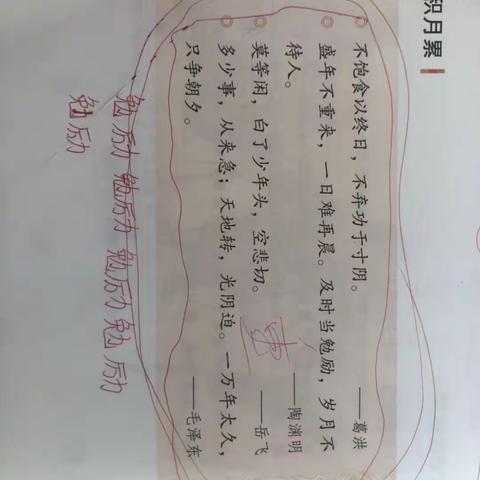 积月累
◎不饱食以终日，不弃功于寸阴。 ——葛洪
◎盛年不重来，一日难再晨。及时当勉励，岁月不
待人。 ——陶渊明
◎莫等闲，白了少年头，空悲切。 ——岳飞
◎多少事，从来急；天地转，光阴迫。一万年太久，
只争朝夕。 ——毛泽东
勉励 勉励 勉励 勉励
勉励